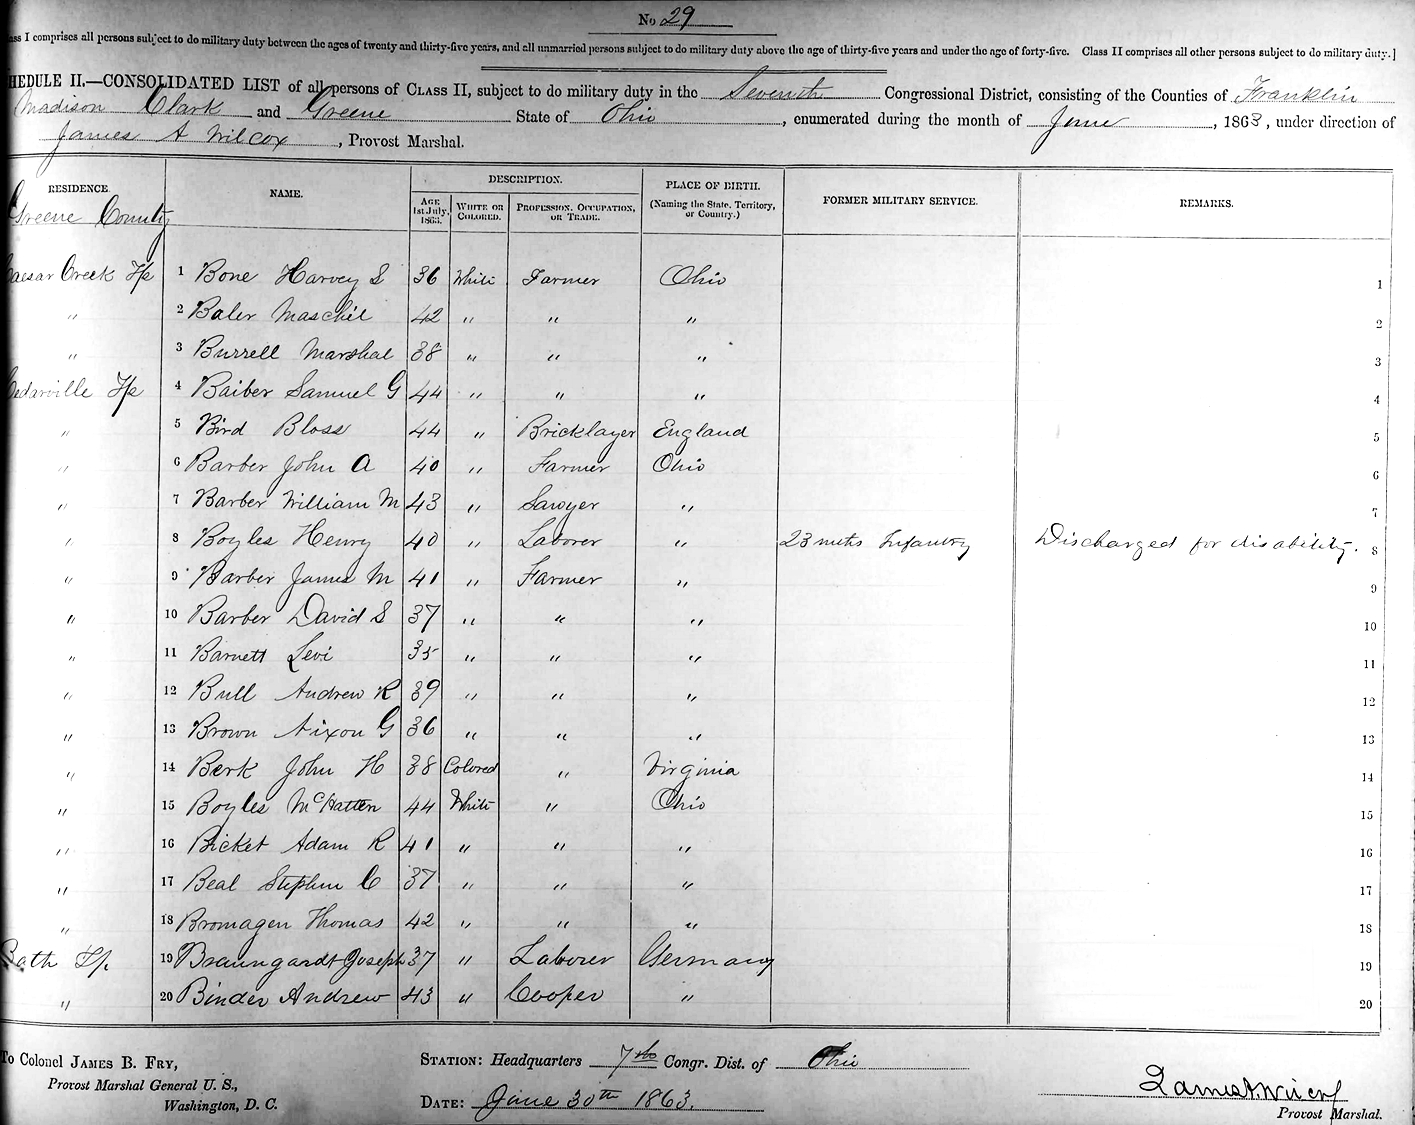 No 29
ass I comprises all persons subject to do military duty between the ages of twenty and thirty-five years, and all unmarried persons subject to do military duty above the age of thirty-five years and under the age of forty-five. Class II comprises all other persons subject to do military duty.]
HEDULE II.—CONSOLIDATED LIST of all persons of CLASS II, subject to do military duty in the Seventh Congressional District, consisting of the Counties of Franklin
Madison Clark and Greene State of Ohio, enumerated during the month of June, 1863, under direction of
James A Wilcox, Provost Marshal.
RESIDENCE. NAME. DESCRIPTION. PLACE OF BIRTH. (Naming the State, Territory, or Country.) FORMER MILITARY SERVICE. REMARKS.
AGE 1st July, 1863. WHITE OR COLORED. PROFESSION, OCCUPATION, OR TRADE.
Greene County
Caesar Creek Tp 1 Bone Harvey S 36 White Farmer Ohio 1
" 2 Baler Maschil 42 " " " 2
" 3 Burrell Marshal 38 " " " 3
Cedarville Tp 4 Baiber Samuel G 44 " " " 4
" 5 Bird Bloss 44 " Bricklayer England 5
" 6 Barber John A 40 " Farmer Ohio 6
" 7 Barber William M 43 " Sawyer " 7
" 8 Boyles Henry 40 " Laborer " 23 mths Infantry Discharged for disability. 8
" 9 Barber James M 41 " Farmer " 9
" 10 Barber David S 37 " " " 10
" 11 Barnett Levi 35 " " " 11
" 12 Bull Andrew R 39 " " " 12
" 13 Brown Nixon G 36 " " " 13
" 14 Berk John H 38 Colored " Virginia 14
" 15 Boyles McHatten 44 White " Ohio 15
" 16 Bicket Adam R 41 " " " 16
" 17 Beal Stephen C 37 " " " 17
" 18 Bromagen Thomas 42 " " " 18
Bath Tp. 19 Braungardt Joseph 37 " Laborer Germany 19
" 20 Binder Andrew 43 " Cooper " 20
To Colonel JAMES B. FRY,
Provost Marshal General U. S.,
Washington, D. C.
STATION: Headquarters 7th Congr. Dist. of Ohio
DATE: June 30th 1863.
James A. Wilcox
Provost Marshal.